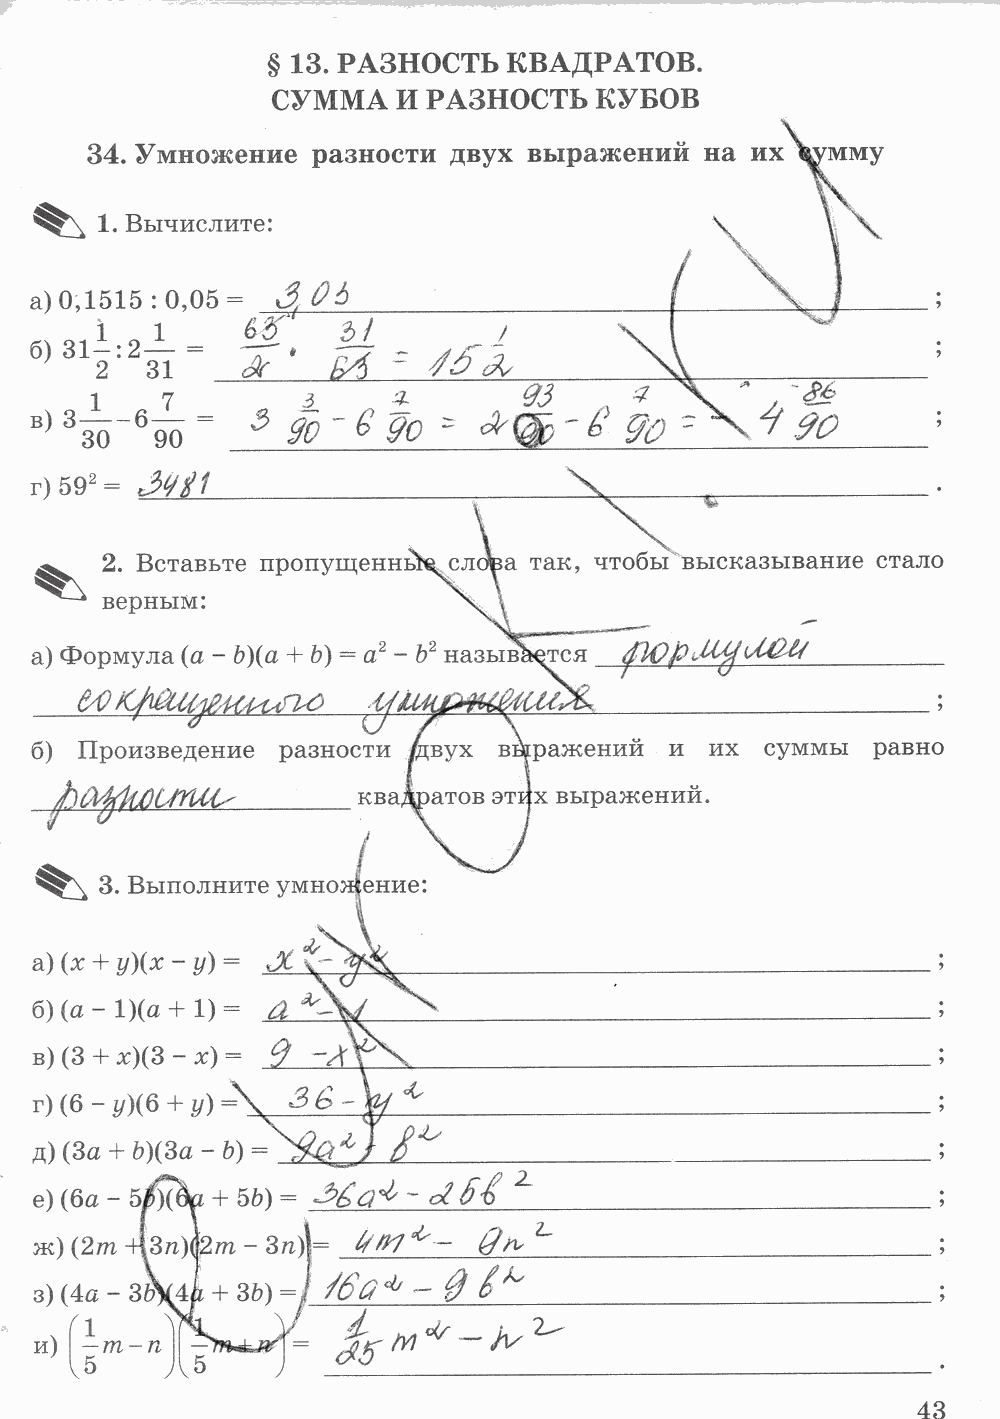 § 13. РАЗНОСТЬ КВАДРАТОВ.
СУММА И РАЗНОСТЬ КУБОВ
34. Умножение разности двух выражений на их сумму
1. Вычислите:
а) 0,1515 : 0,05 = 3,03 ;
б) 31 1/2 : 2 1/31 = 63/2 · 31/63 = 15 1/2 ;
в) 3 1/30 − 6 7/90 = 3 3/90 − 6 7/90 = 2 93/90 − 6 7/90 = − 4 86/90 ;
г) 59² = 3481 .
2. Вставьте пропущенные слова так, чтобы высказывание стало
верным:
а) Формула (a − b)(a + b) = a² − b² называется формулой
сокращенного умножения ;
б) Произведение разности двух выражений и их суммы равно
разности квадратов этих выражений.
3. Выполните умножение:
а) (x + y)(x − y) = x² − y² ;
б) (a − 1)(a + 1) = a² − 1 ;
в) (3 + x)(3 − x) = 9 − x² ;
г) (6 − y)(6 + y) = 36 − y² ;
д) (3a + b)(3a − b) = 9a² − b² ;
е) (6a − 5b)(6a + 5b) = 36a² − 25b² ;
ж) (2m + 3n)(2m − 3n) = 4m² − 9n² ;
з) (4a − 3b)(4a + 3b) = 16a² − 9b² ;
и) (1/5 m − n)(1/5 m + n) = 1/25 m² − n² .
43